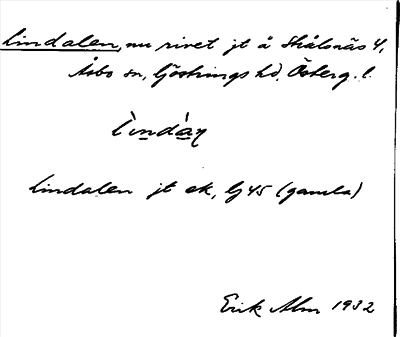 Lindalen, nu rivet jt å Skålsnäs 4,
Åsbo sn, Göstrings hd, Österg. l.
lìndàṇ
Lindalen jt ek, Lj 45 (gamla)
Erik Alm 1932